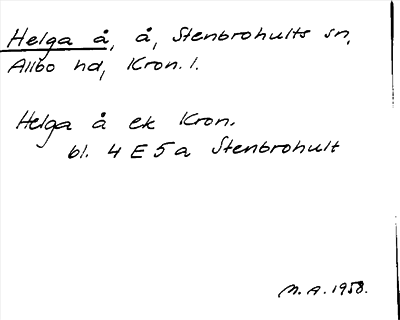 Helga å, å, Stenbrohults sn,
Allbo hd, Kron. l.
Helga å ek Kron.
bl. 4 E 5 a Stenbrohult
M. A. 1958.